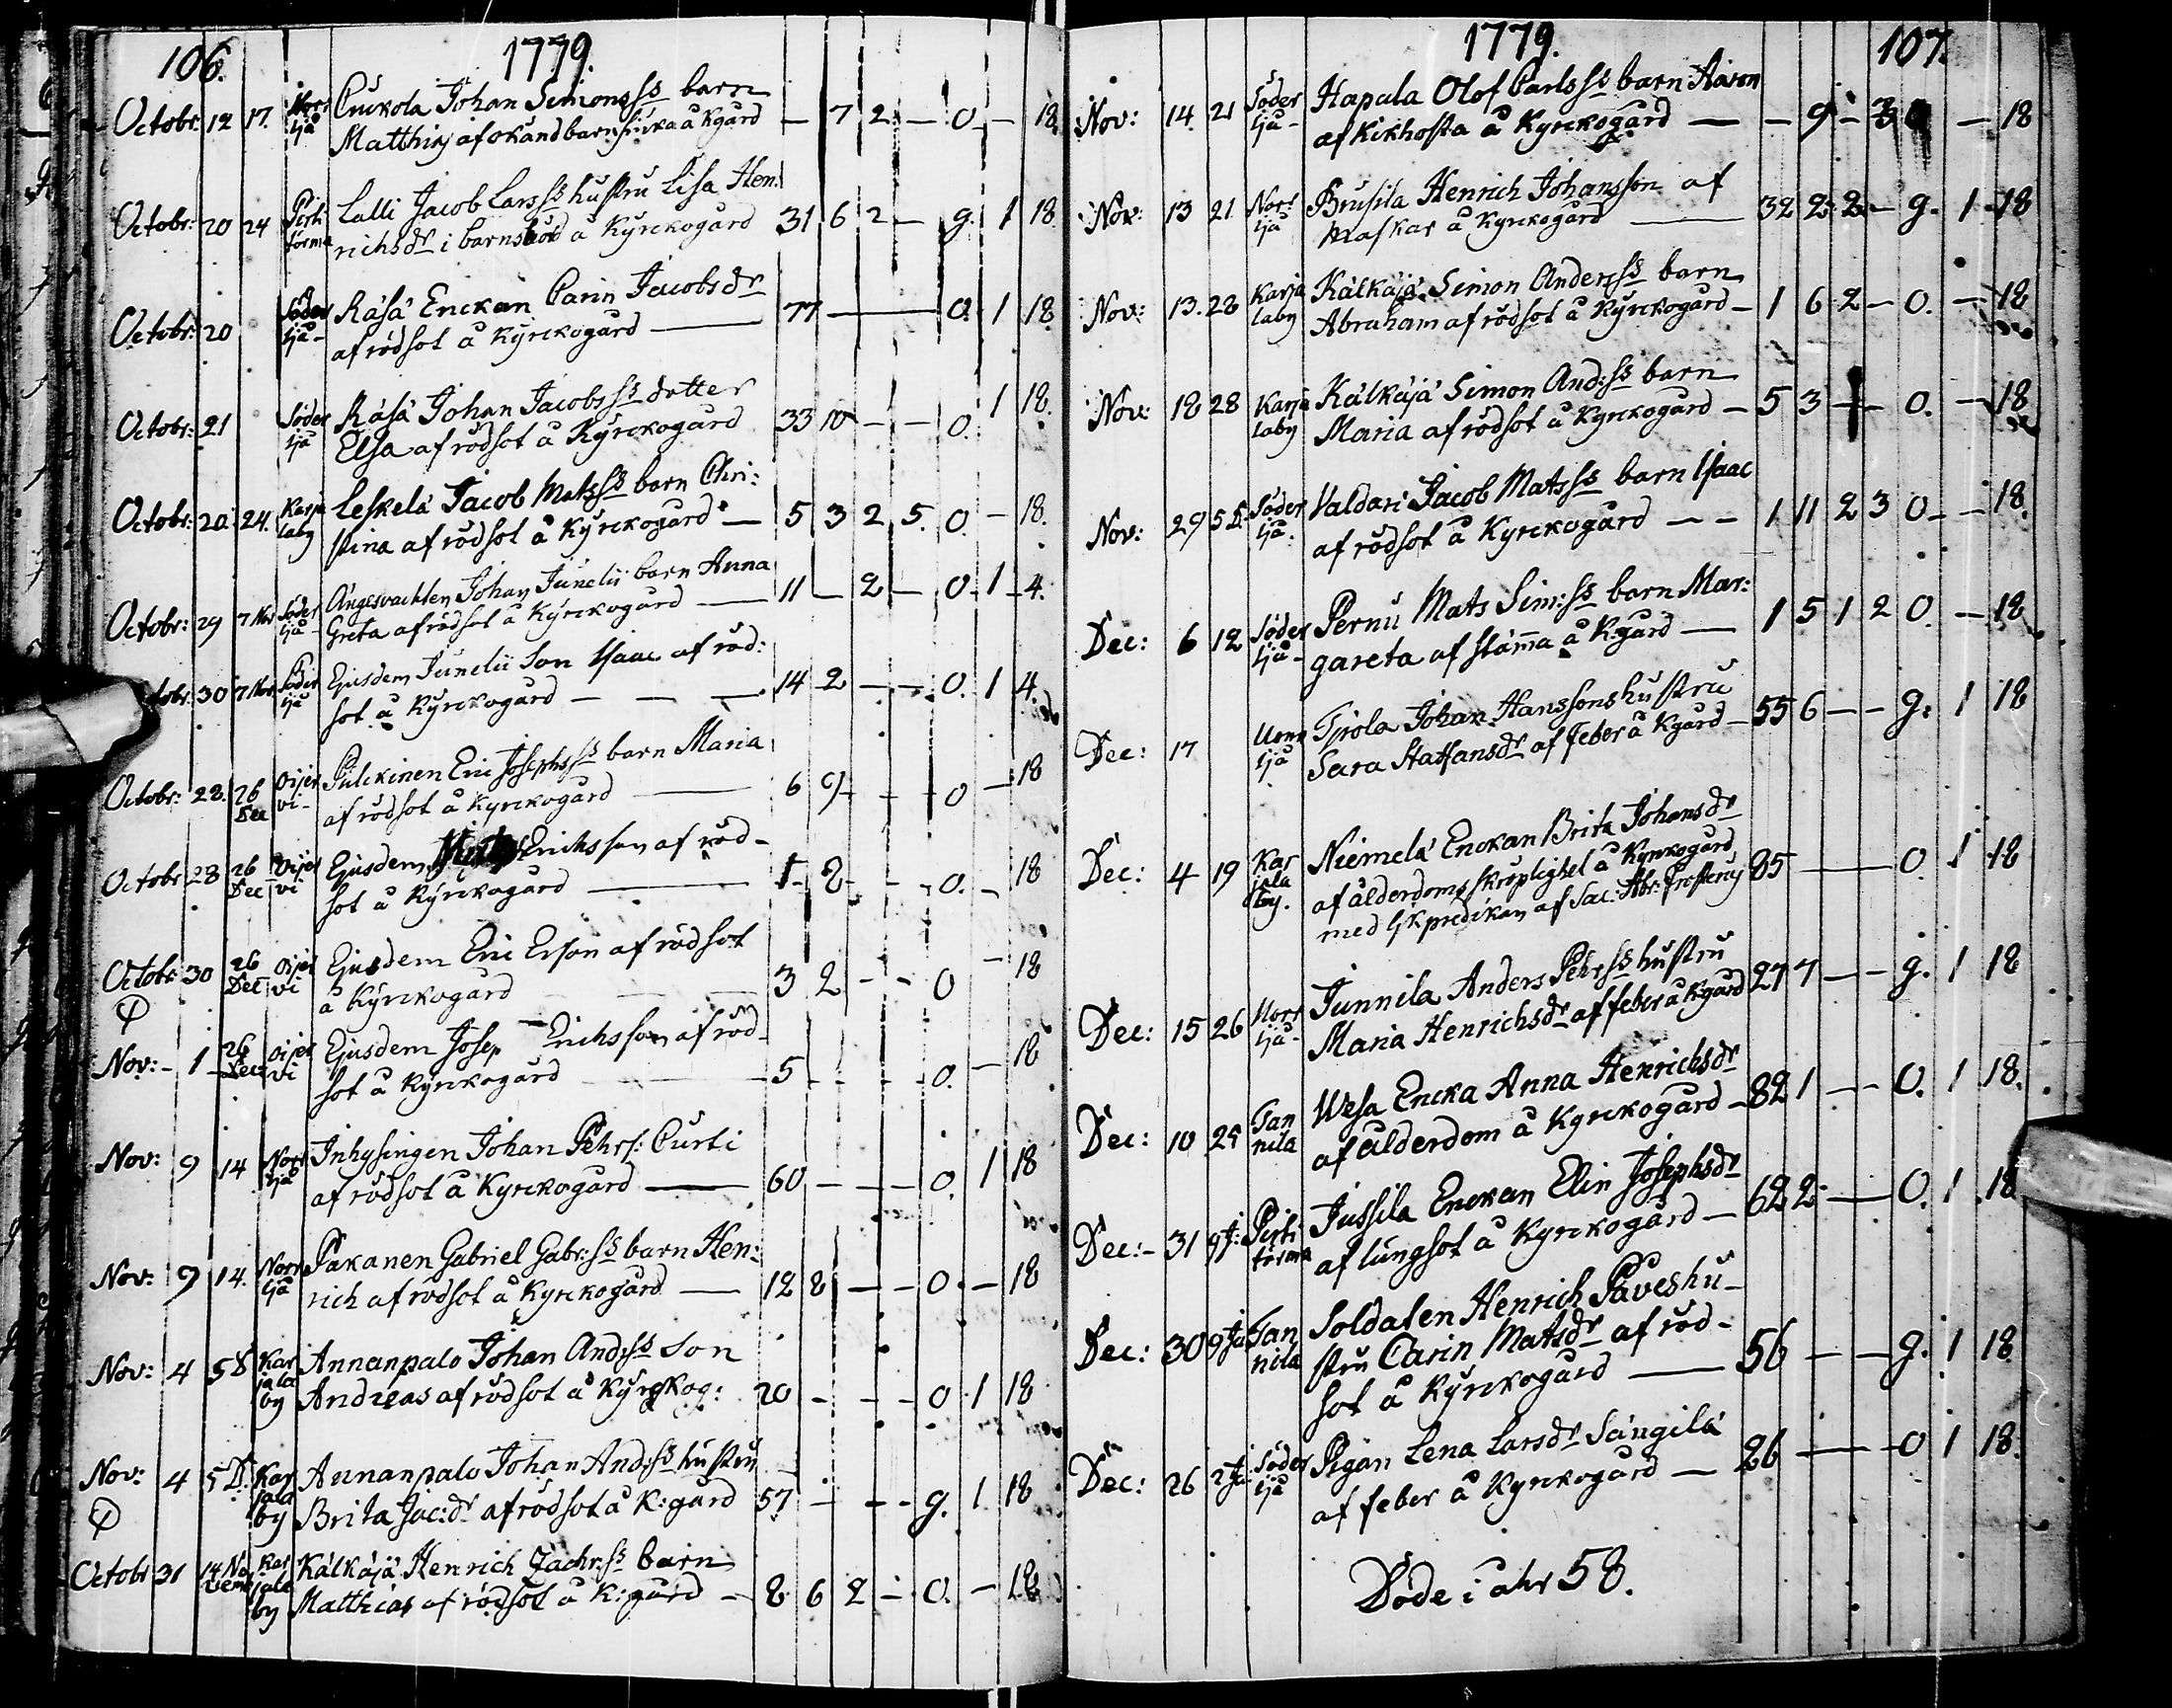 106. 1779.
Octobr: 12 17. Norr Cuckola Johan Simonss:s barn
ljå Matthias af okänd barnsiuka å Kgård — 7 2 — 0 — 18.
Octobr: 20 24 Pirti Lalli Jacob Larss:s hustru Lisa Hen:
törmä richsdr i barnsbörd å Kyrckogård 31 6 2 — g. 1 18
Octobr: 20 Söder Räsä Enckan Carin Jacobsdr
ljå af rödsot å Kyrckogård — 77 — 0. 1 18
Octobr: 21 Söder Räsä Johan Jacobss:s dotter
ljå Elsa af rödsot å Kyrckogård 33 10 — — 0. 1 18.
Octobr: 20 24. Karja Leskelä Jacob Matss:s barn Chri:
laby stina af rödsot å Kyrckogård — 5 3 2 5. 0. — 18.
Octobr: 29 7 Nov Söder Ängesvackten Johan Junelii barn Anna
ljå Greta af rödsot å Kyrckogård — 11 — 2 — 0 1 4.
Octobr: 30 7 Nov Söder Ejusdem Junelii Son Isaac af röd:
ljå sot å Kyrckogård — — — 14 2 — — 0. 1 4.
Octobr: 28. 26 Oijer Pulckinen Eric Josephss:s barn Maria
Dec vi- af rödsot å Kyrckogård — 6 9 - - 0 — 18
Octobr 28 26 Oijer Ejusdem Erichsson af röd-
Dec vi sot å Kyrckogård — 1 2 - - 0. - 18
Octobr: 30 26 Oijer Ejusdem Eric Erson af rödsot
Dec vi å Kyrckogård — 3 2 - - 0 — 18
Nov: - 1 26 Oijer Ejusdem Josep Erichsson af röd-
Dec: vi sot å Kyrckogård — 5 - - - 0. — 18
Nov: 9 14 Norr Inhysingen Johan Pehrs: Curti
ljå af rödsot å Kyrckogård — 60 — — — 0. 1 18
Nov: 9 14. Norr Pakanen Gabriel Gabr:s:s barn Hen:
ljå rich af rödsot å Kyrckogård — 12 8 — — 0. — 18
Nov: 4 5 D Kar Annanpalo Johan And:s:s Son
jala
by Andreas af rödsot å Kyrckog: 20 - - - 0 1 18
Nov: 4 5 D: Kar Annanpalo Johan And:s:s hustru
jala
by Brita Jac:dr af rödsot å K:gård 57 — - - g. 1 18
Octobr 31 14 No Kar Kälkäjä Henrich Zachr:s:s barn
vemb jala
by Matthias af rödsot å K:gård — 8 6 2 — 0. — 18
1779. 107.
Nov: 14. 21 Söder Hapala Olof Carlss:s barn Aaron
ljå- af Kikhosta å Kyrckogård — — 9 - 3 0 — 18
Nov: 13 21 Norr Brusila Henrich Johansson af
ljå Maskar å Kyrckogård — 32 2 2 — g. 1 18
Nov: 13. 28 Karja Kälkäjä Simon Anderss:s barn
laby Abraham af rödsot å Kyrckogård — 1 6 2 — 0. — 18
Nov: 18 28 Karja Kälkäjä Simon And:s:s barn
laby Maria af rödsot å Kyrckogård — 5 3 — 0. — 18
Nov: 29 5 D: Söder Valdari Jacob Matss:s barn Isaac
ljå. af rödsot å Kyrckogård — — 1 11 2 3 0 — 18.
Dec: 6 12 Söder Pernu Mats Sim:s:s barn Mar:
ljå- gareta af stämma å K:gård — 1 5 1 2 0. — 18
Dec: 17 Norr Tjrola Johan Hanssons hustru
ljå Sara Staffansdr af feber å Kgård — 55 6 — — g. 1 18
Dec: 4 19 Kar Niemelä Enckan Brita Johansdr
jala af ålderdoms skröplighet å Kyrckogård
by. med ljkpredikan af Sac: Abr: Frosterus 85 — 0. 1 18
Dec: 15 26 Norr Junnila Anders Pehrss:s hustru
ljå- Maria Henrichsdr af feber å Kgård 27 7 — — g. 1 18
Dec: 10 25 Tan Wesa Encka Anna Henrichsdr
nila af ålderdom å Kyrckogård — 82 1 — — 0. 1 18.
Dec: - 31 9 J: Pirti Jussila Enckan Elin Josephsdr
törmä af lungsot å Kyrckogård — 62 2 — 0. 1 18
Dec: 30 9 Ja Tan Soldaten Henrich Påves hu-
nila stru Carin Matsdr af röd-
sot å Kyrckogård — 56 — — g. 1 18
Dec: 26 2 Ja: Söder Pigan Lena Larsdr Sångilä
ljå af feber å Kyrckogård — 26 — 0 1 18.
Döde i åhr 58.